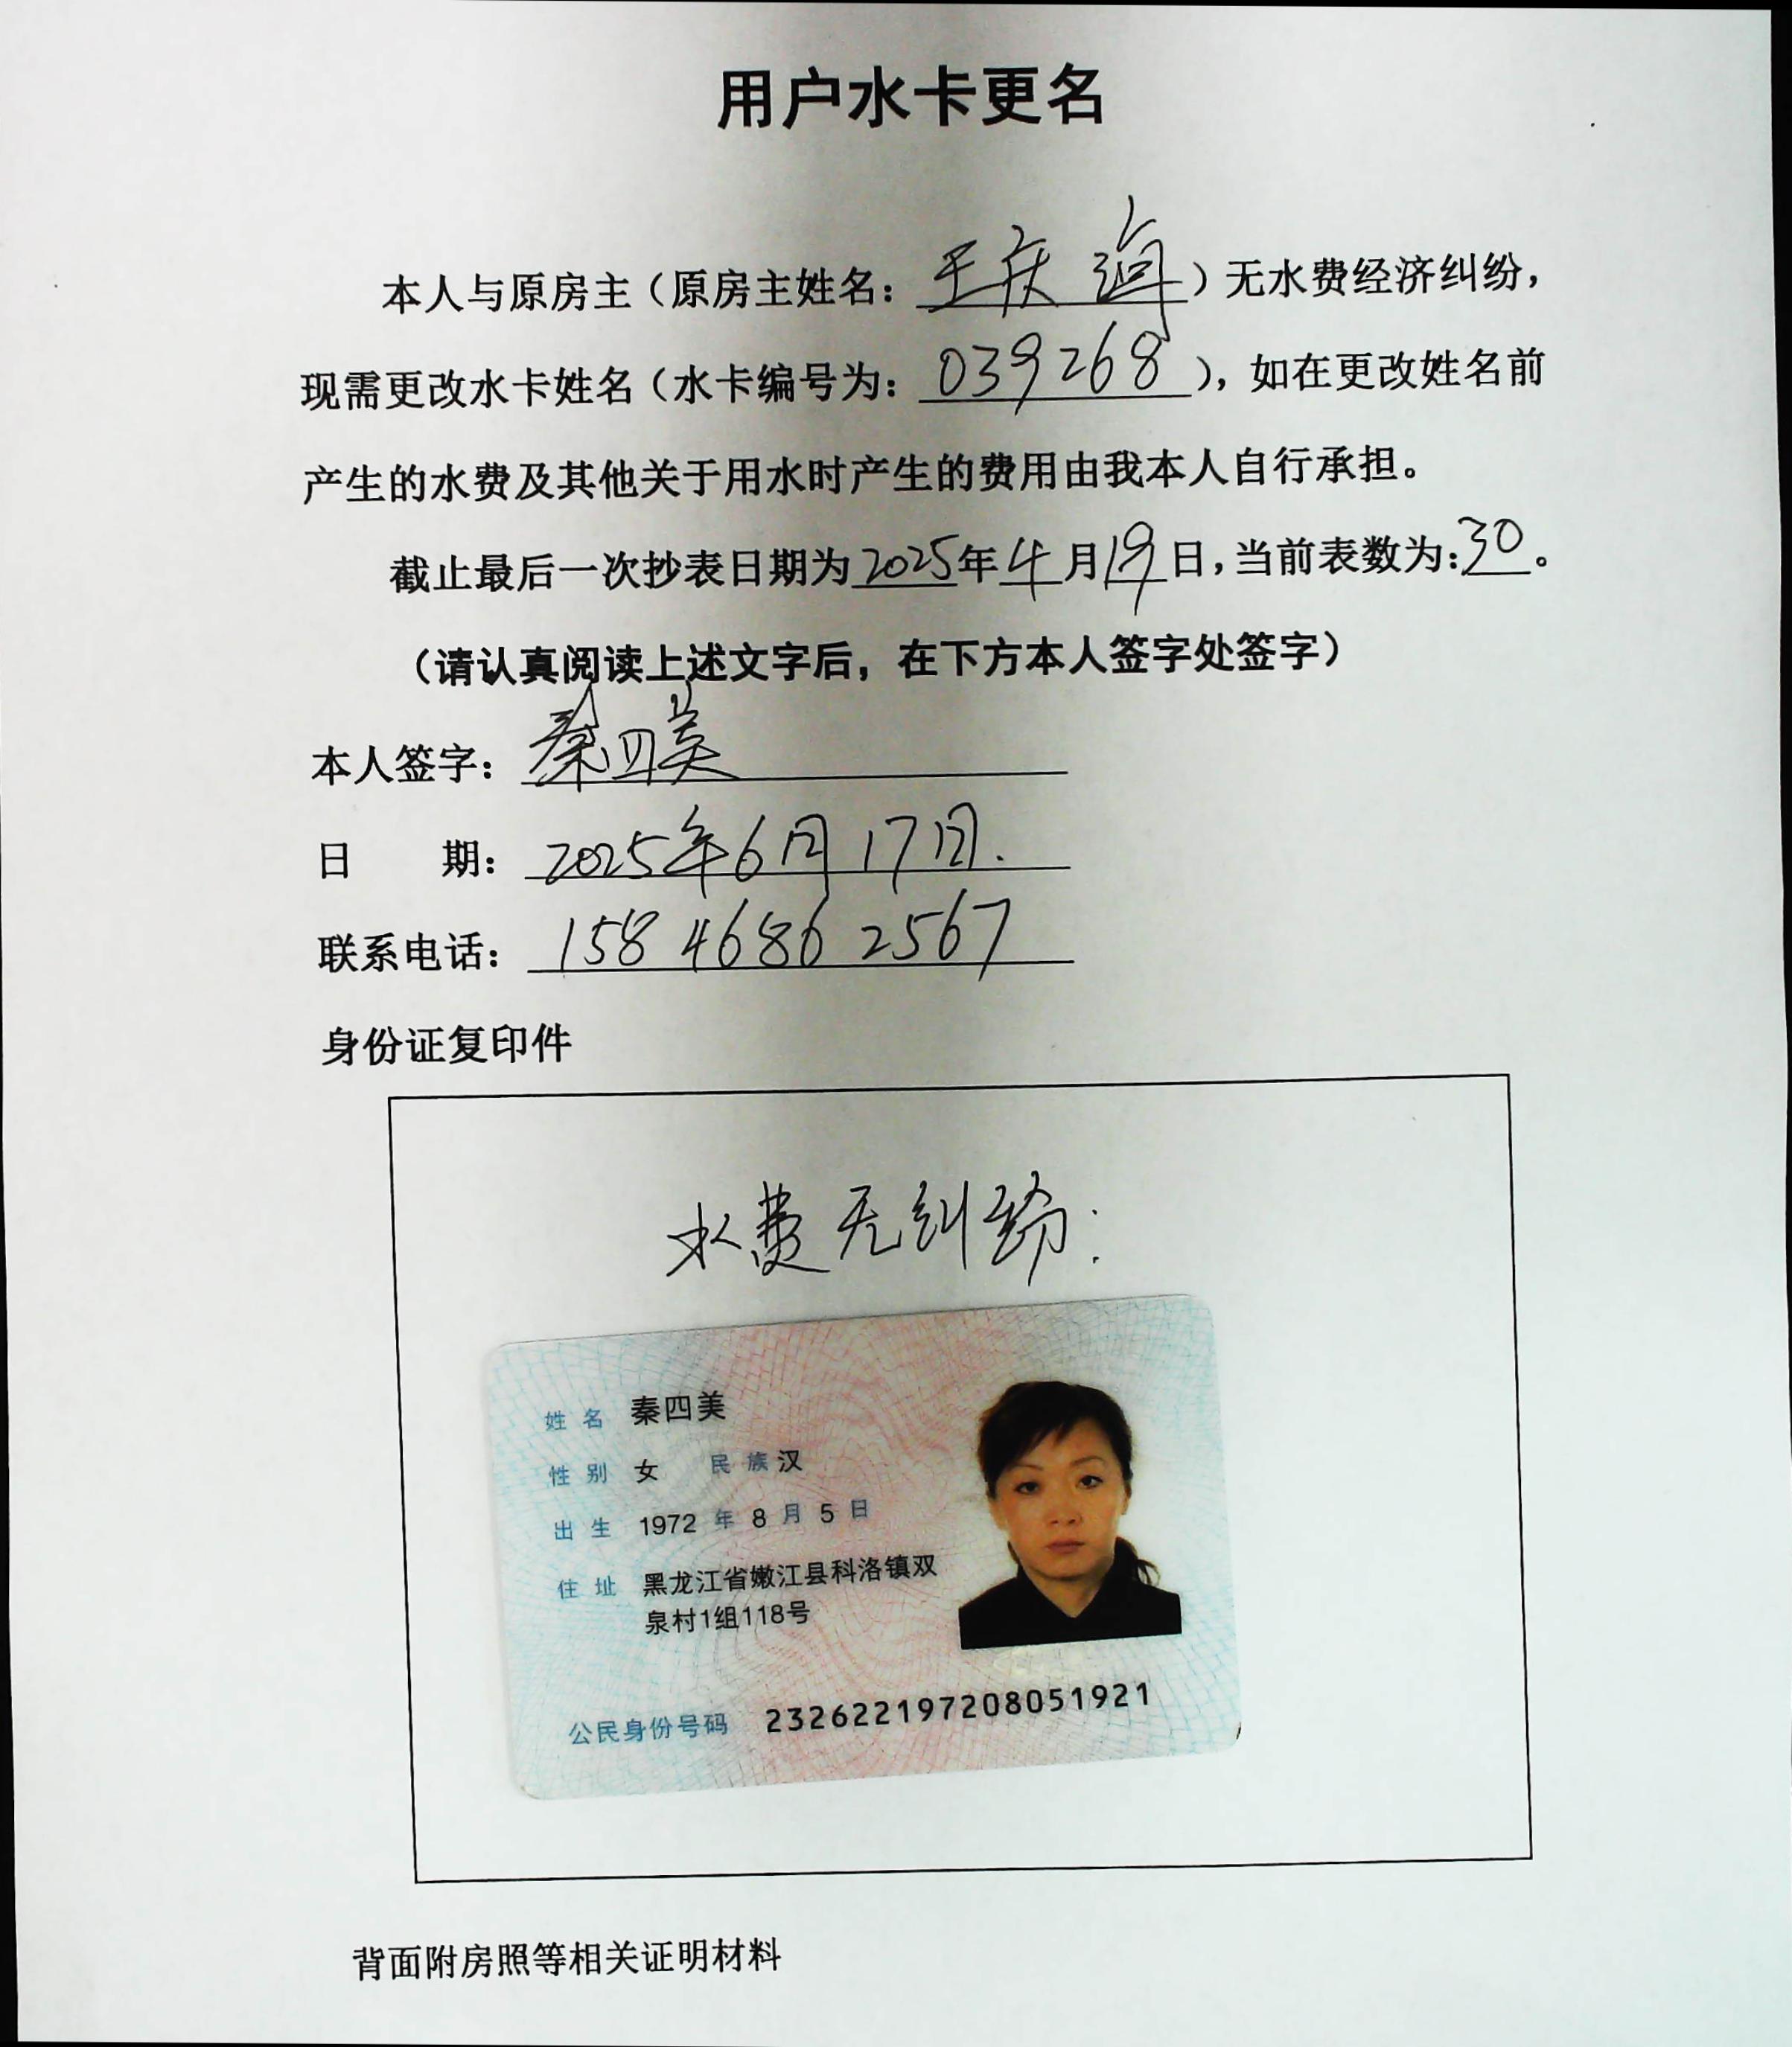 用户水卡更名
本人与原房主（原房主姓名：王庆 ）无水费经济纠纷，
现需更改水卡姓名（水卡编号为：039268），如在更改姓名前
产生的水费及其他关于用水时产生的费用由我本人自行承担。
截止最后一次抄表日期为2025年4月19日，当前表数为：30。
（请认真阅读上述文字后，在下方本人签字处签字）
本人签字：秦四美
日 期：2025年6月17日.
联系电话：158 4686 2567
身份证复印件
水费无纠纷：
姓名 秦四美
性别 女 民族 汉
出生 1972 年 8 月 5 日
住址 黑龙江省嫩江县科洛镇双
泉村1组118号
公民身份号码 232622197208051921
背面附房照等相关证明材料